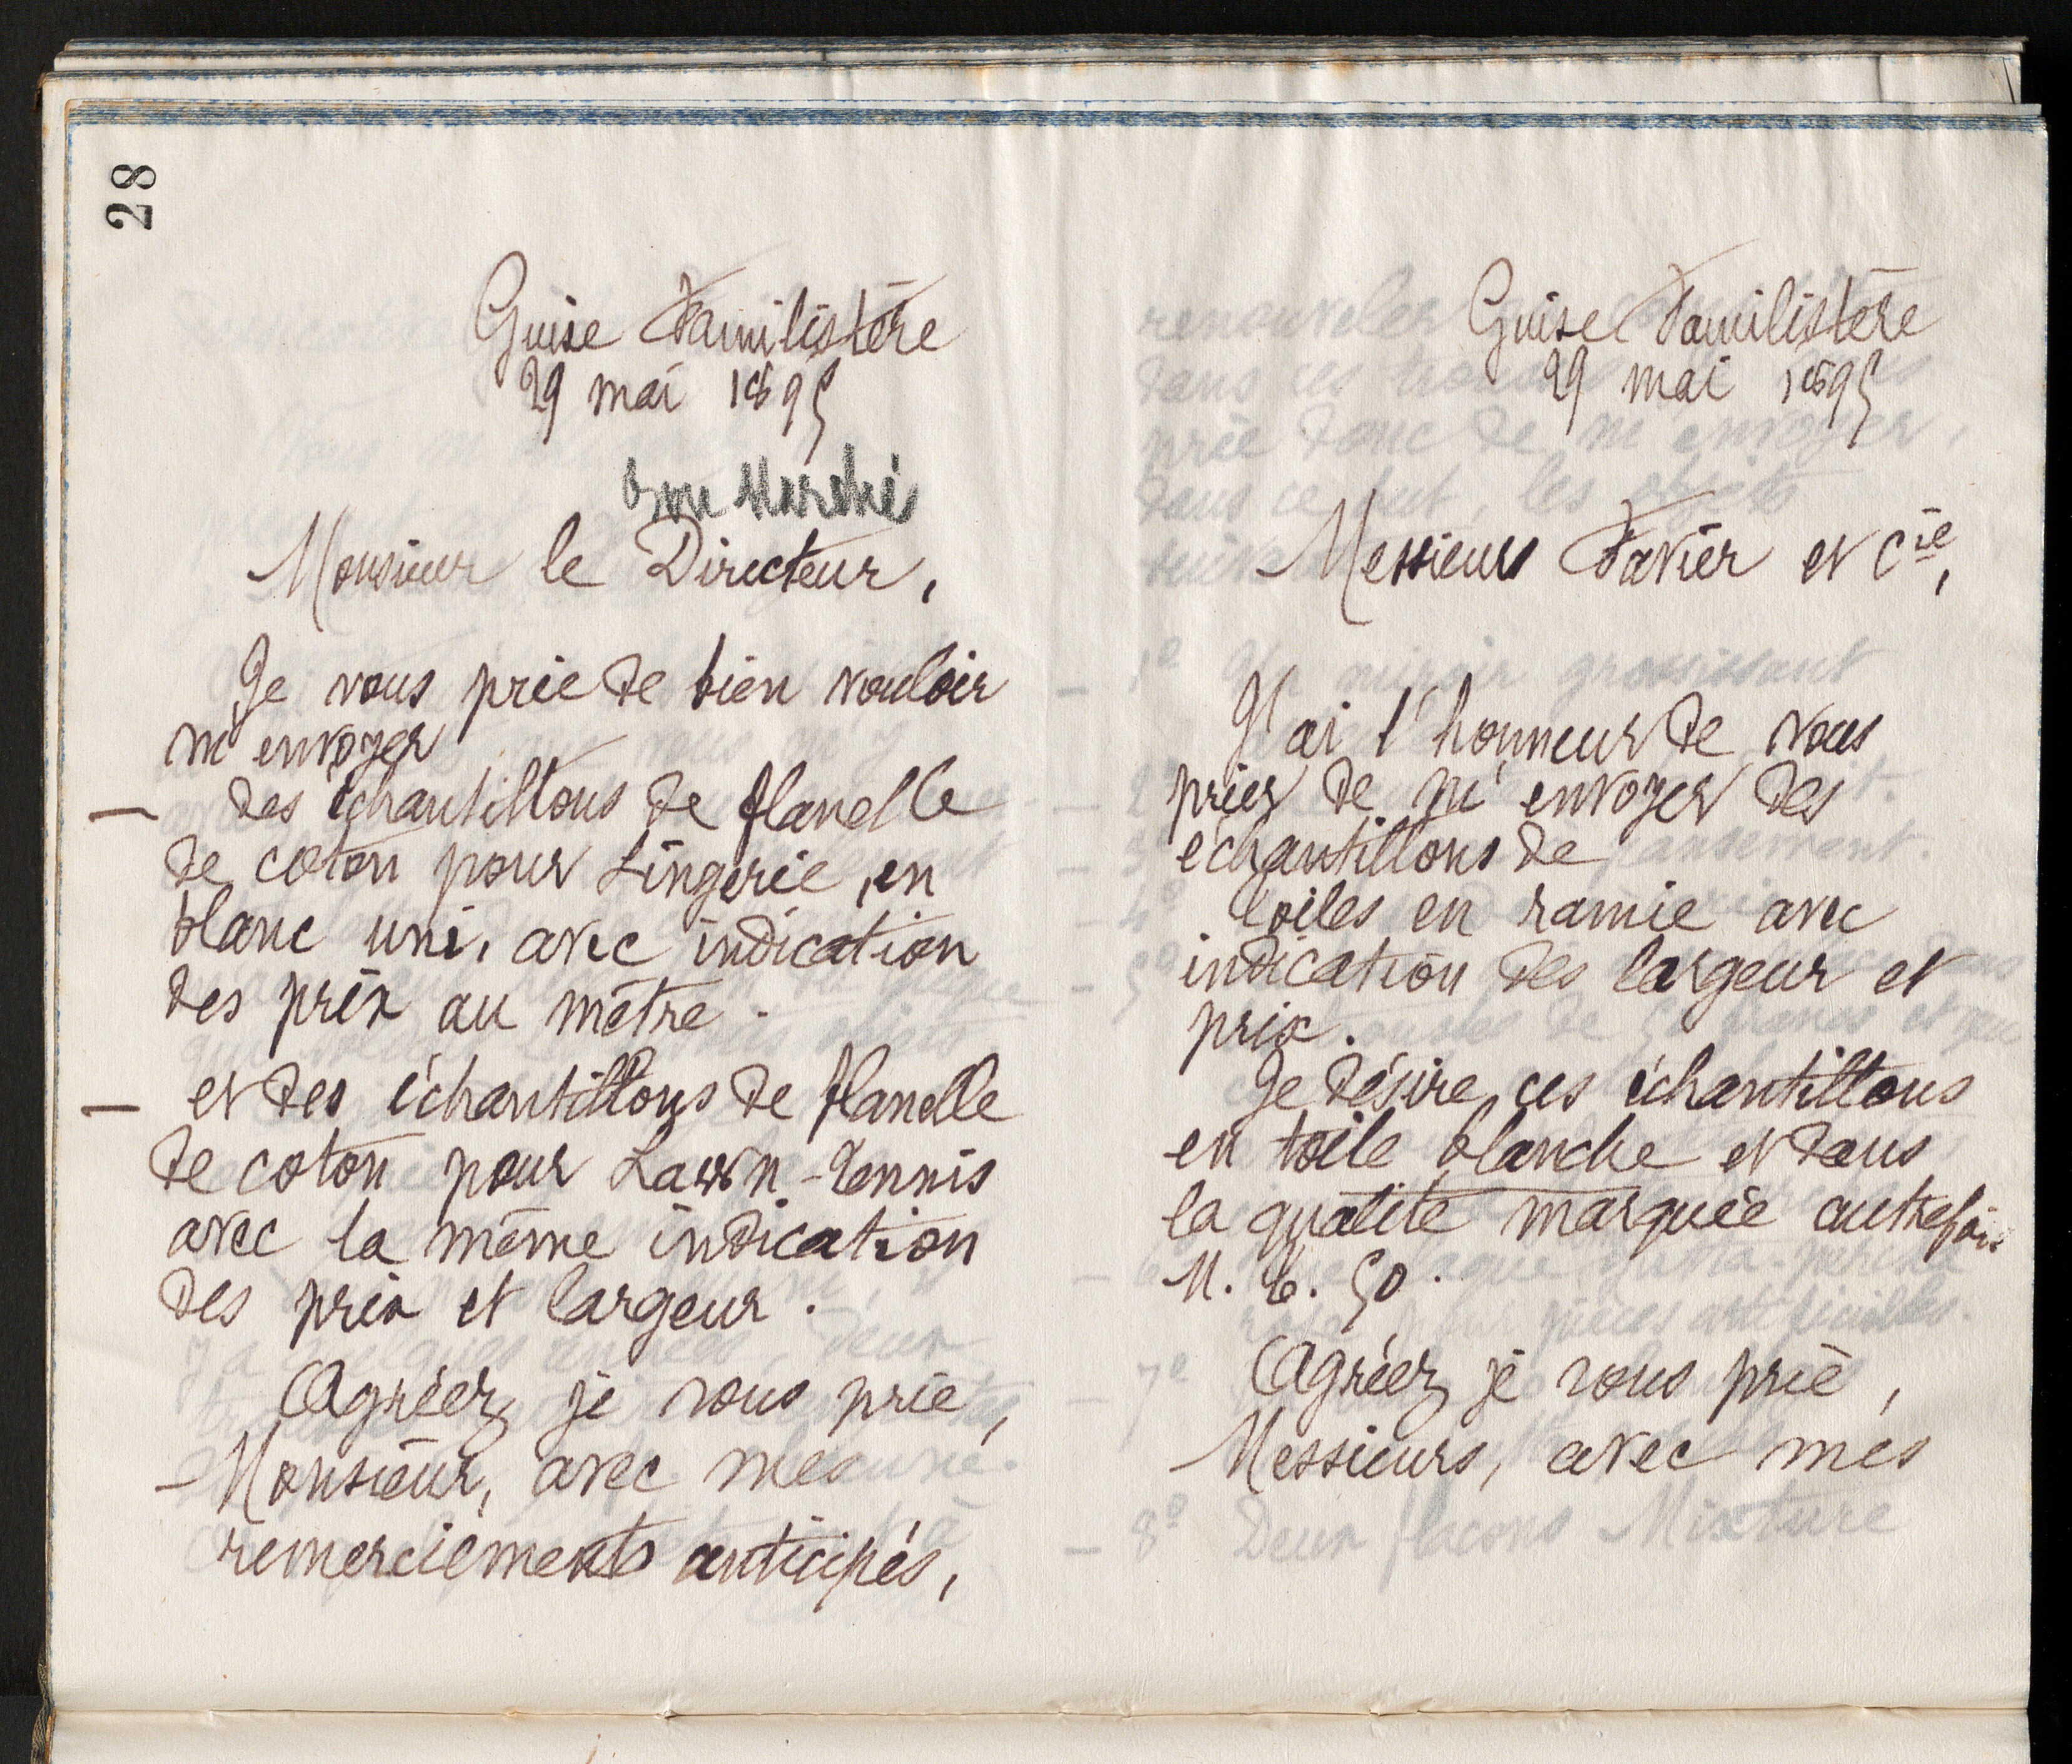 28
Guise Familistère
29 mai 1895
Bon Marché
Monsieur le Directeur,
Je vous prie de bien vouloir
m'envoyer
— des échantillons de flanelle
de coton pour Lingerie, en
blanc uni, avec indication
des prix au mètre.
— et des échantillons de flanelle
de coton pour Lawn-Tennis
avec la même indication
des prix et largeur.
Agréez, je vous prie,
Monsieur, avec mes
remerciements anticipés,
Guise Familistère
29 mai 1895
Messieurs Favier et Cie,
J'ai l'honneur de vous
prier de m'envoyer des
échantillons de
toiles en ramie avec
indication des largeur et
prix.
Je désire ces échantillons
en toile blanche et dans
la qualité marquée autrefois
Agréez, je vous prie,
Messieurs, avec mes